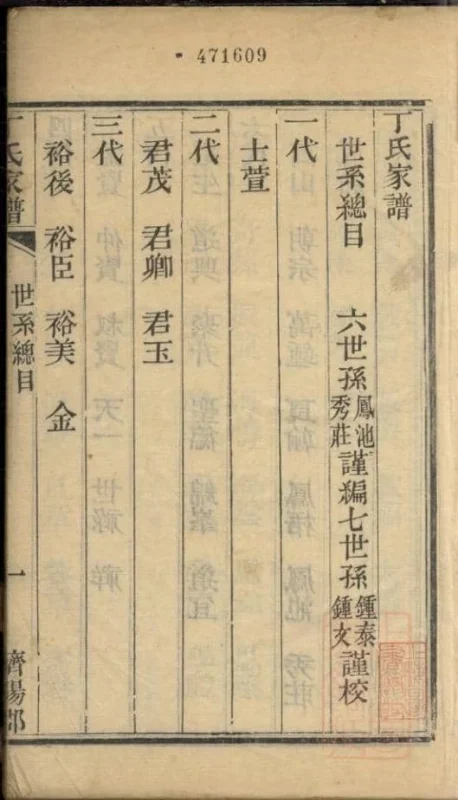 471609
丁氏家譜
世系總目 六世孫鳳池秀莊謹編七世孫鍾泰鍾文謹校
一代
士萱
二代
君茂 君卿 君玉
三代
裕後 裕臣 裕美 金
丁氏家譜 世系總目 一 濟陽郡